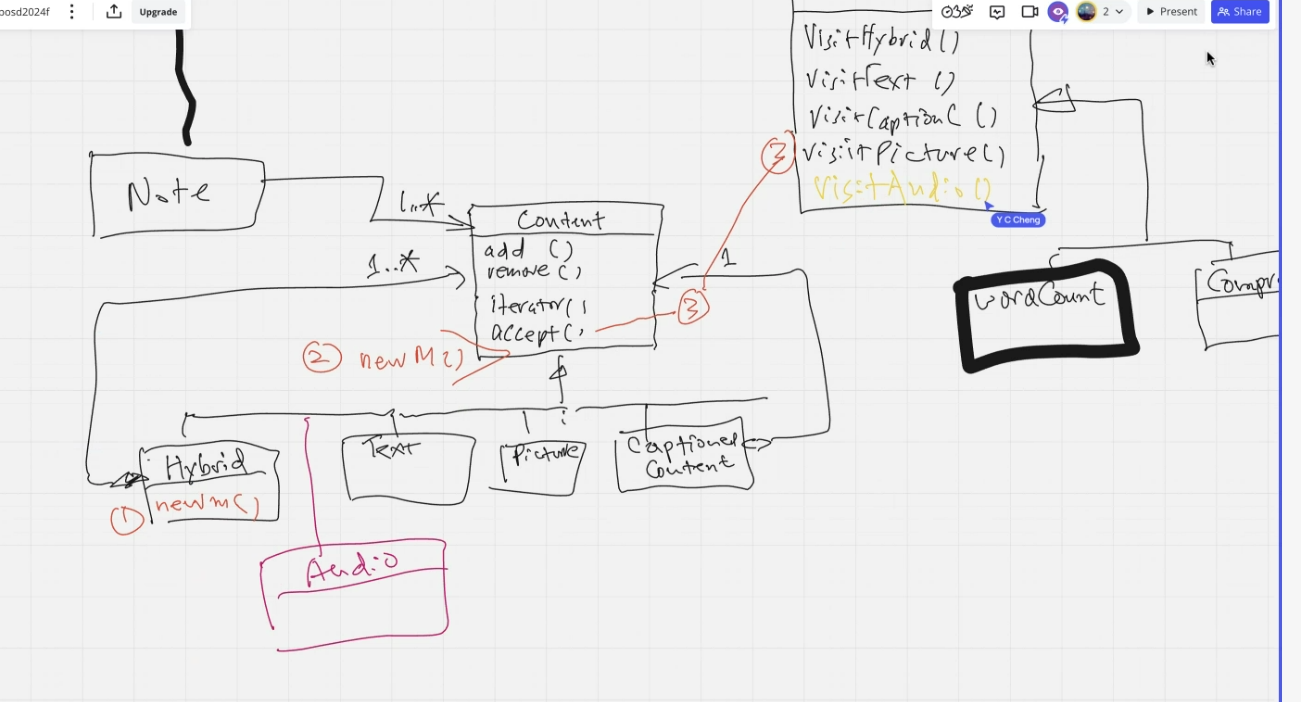 posd2024f
Upgrade
2
Present
Share
VisitHybrid()
VisitText ()
VisitCaptionC ()
VisiitPicture()
VisitAudio()
Y C Cheng
Note
1..*
Content
add ()
remove ()
iterator()
accept()
1..*
1
3
3
2 newM()
wordCount
Compr
Hybrid
1 newm()
Text
Picture
Captioned
Content
Audio